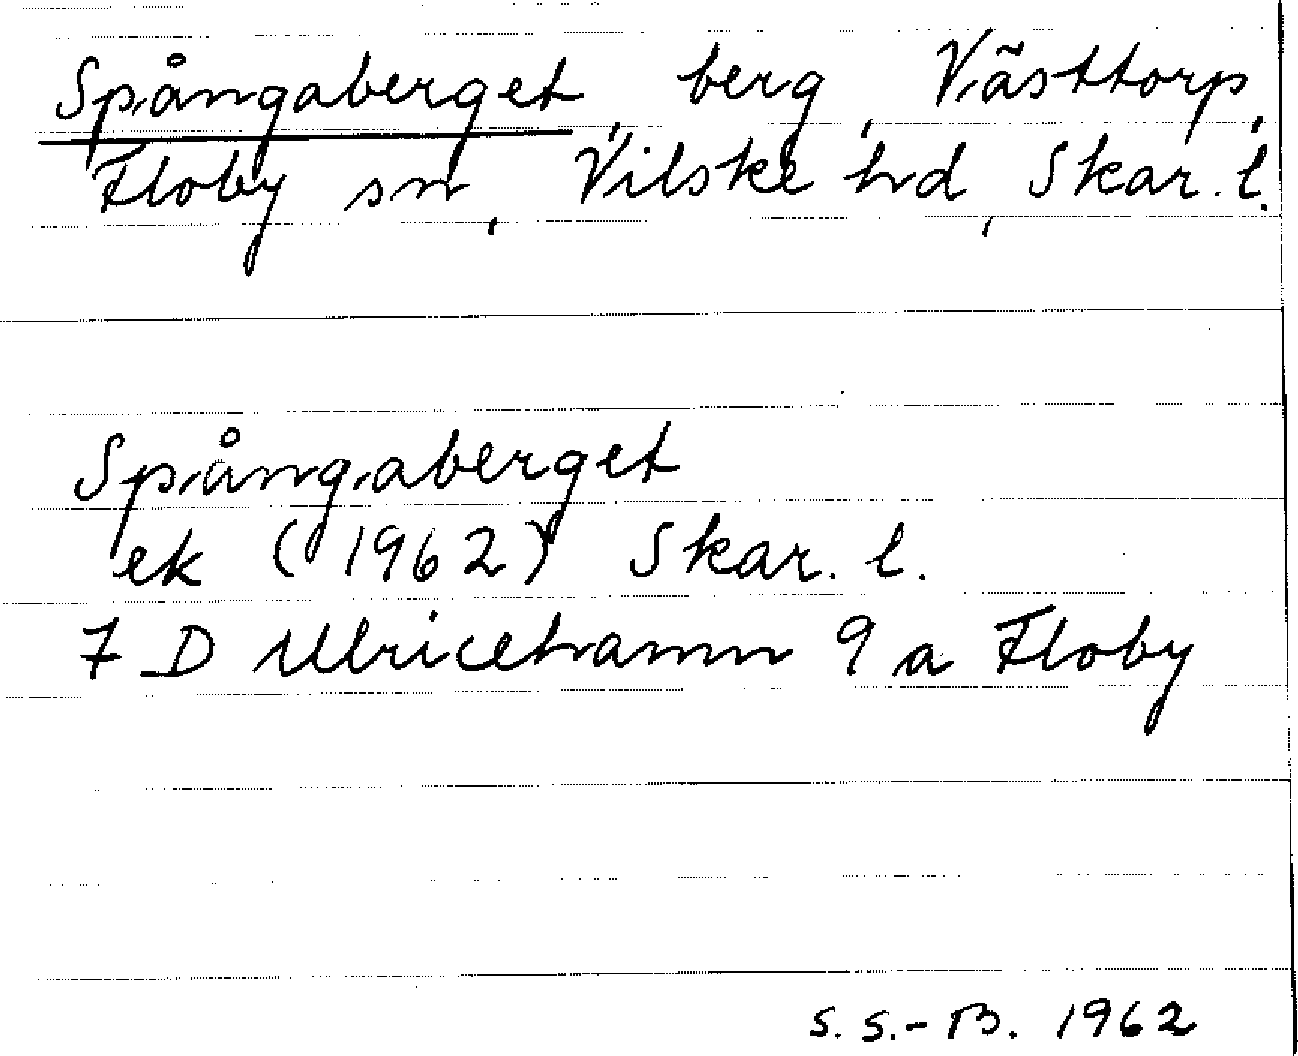 Spångaberget, berg, Västtorp,
Floby sn, Vilske hd, Skar. l.
Spångaberget
ek (1962) Skar. l.
7 D Ulricehamn 9 a Floby
S. S.-B. 1962